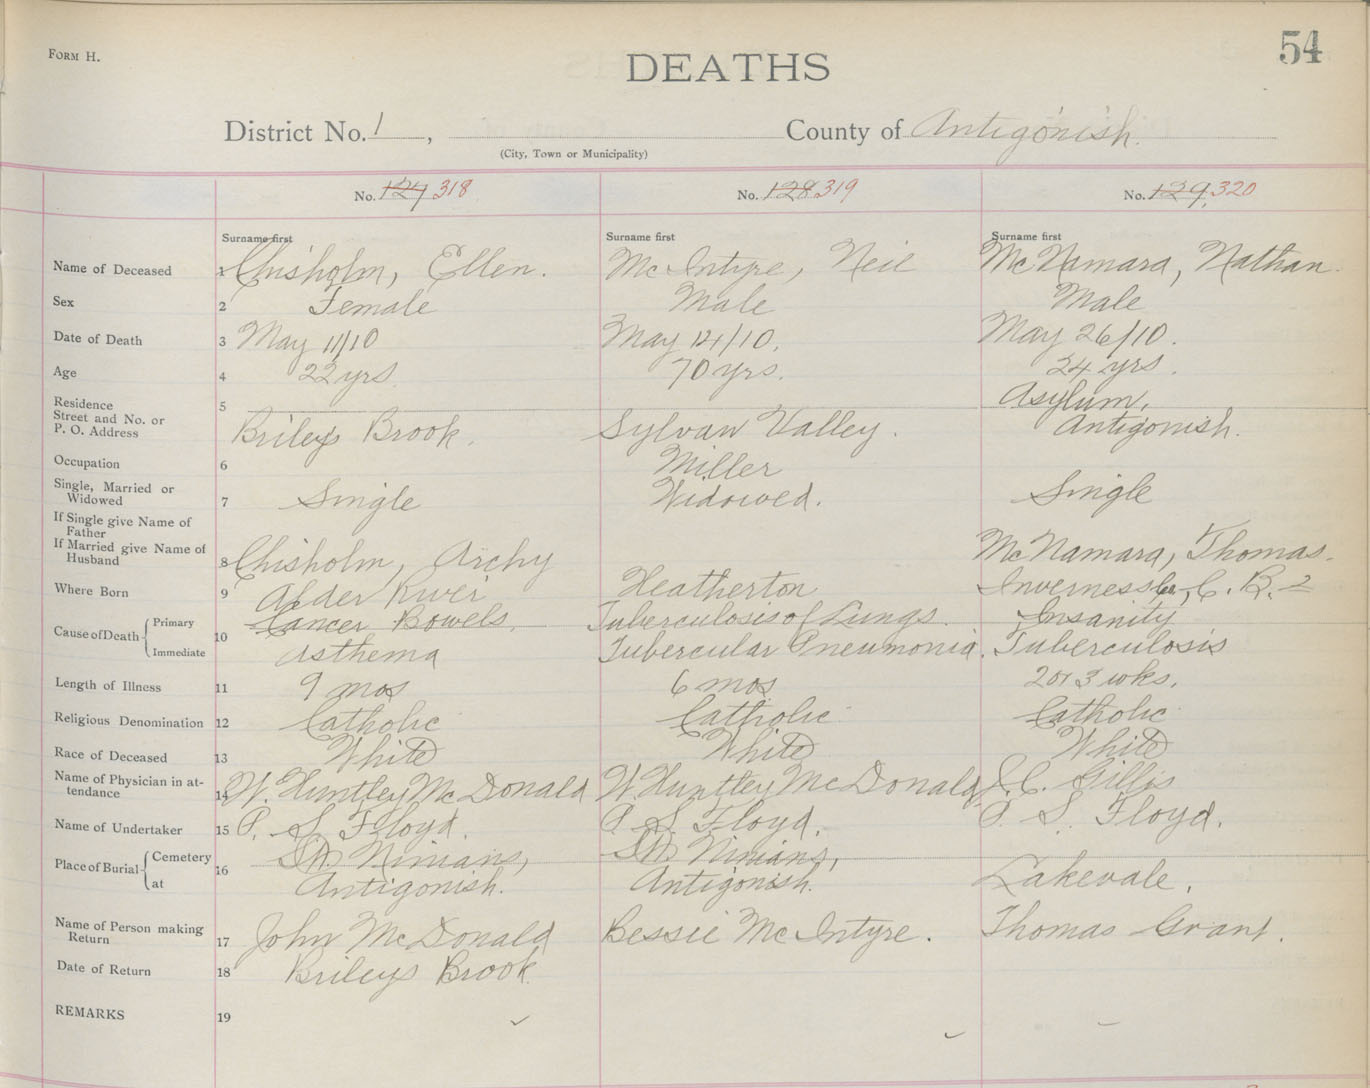 54
FORM H.
DEATHS
District No. 1, County of Antigonish.
(City, Town or Municipality)
No. 127 318 No. 128 319 No. 129, 320
Surname first Surname first Surname first
Name of Deceased 1 Chisholm, Ellen. McIntyre, Neil McNamara, Nathan
Sex 2 Female Male Male
Date of Death 3 May 11/10 May 14/10, May 26/10.
Age 4 22 yrs. 70 yrs. 24 yrs.
Residence 5 Asylum,
Street and No. or
P. O. Address Brileys Brook. Sylvan Valley. Antigonish.
Occupation 6 Miller
Single, Married or
Widowed 7 Single Widowed. Single
If Single give Name of
Father
If Married give Name of
Husband 8 Chisholm, Archy McNamara, Thomas.
Where Born 9 Alder River Heatherton Inverness Co, C. B.
Cause of Death Primary 10 Cancer Bowels, Tuberculosis of Lungs. Insanity
Immediate Asthema Tubercular Pneumonia. Tuberculosis
Length of Illness 11 9 mos 6 mos 2 or 3 wks.
Religious Denomination 12 Catholic Catholic Catholic
Race of Deceased 13 White White White
Name of Physician in at-
tendance 14 W. Huntley McDonald W. Huntley McDonald J. C. Gillis
Name of Undertaker 15 P. S. Floyd. P. S. Floyd. P. S. Floyd.
Place of Burial Cemetery 16 St Ninians, St Ninians,
at Antigonish. Antigonish. Lakevale.
Name of Person making
Return 17 John McDonald Bessie McIntyre. Thomas Grant.
Date of Return 18 Brileys Brook.
REMARKS 19